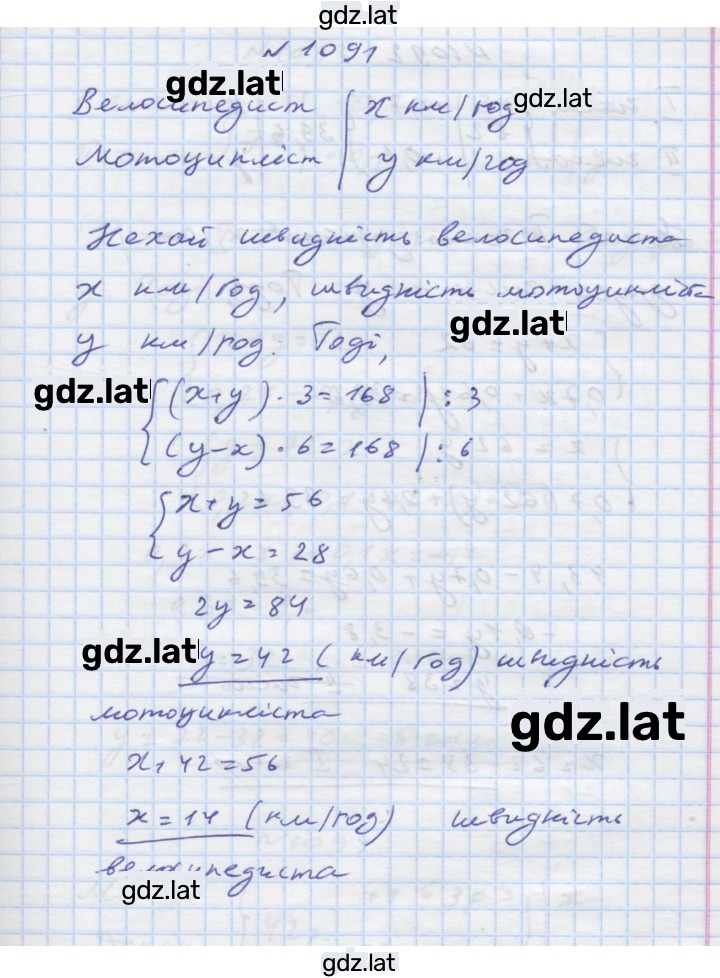 gdz.lat
№ 1091
gdz.lat
Велосипедист | x км/год gdz.lat
Мотоцикліст | y км/год
Нехай швидність велосипедиста
x км/год, швидність мотоцикліста
y км/год. Тоді,
gdz.lat
gdz.lat
{ (x+y) · 3 = 168 | : 3
(y-x) · 6 = 168 | : 6
{ x+y = 56
y - x = 28
2y = 84
gdz.lat y = 42 (км/год) швидність
мотоцикліста
gdz.lat
x + 42 = 56
x = 14 (км/год) швидність
велосипедиста
gdz.lat
gdz.lat